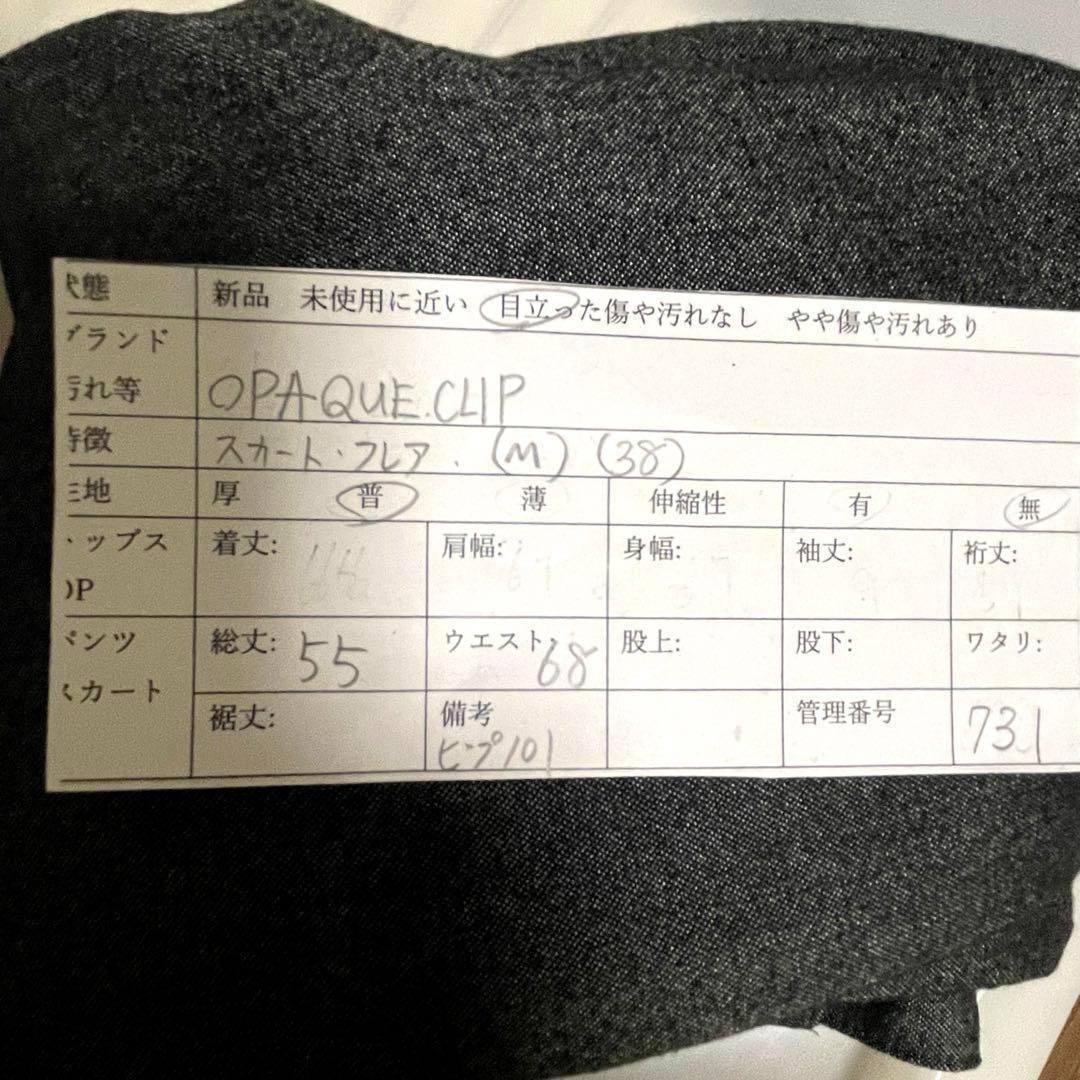 状態 新品 未使用に近い 目立った傷や汚れなし やや傷や汚れあり
ブランド
汚れ等 OPAQUE.CLIP
特徴 スカート・フレア. (M) (38)
生地 厚 普 薄 伸縮性 有 無
トップス 着丈: 肩幅: 身幅: 袖丈: 裄丈:
OP
パンツ 総丈: 55 ウエスト: 68 股上: 股下: ワタリ:
スカート
裾丈: 備考 管理番号 731
ヒップ101